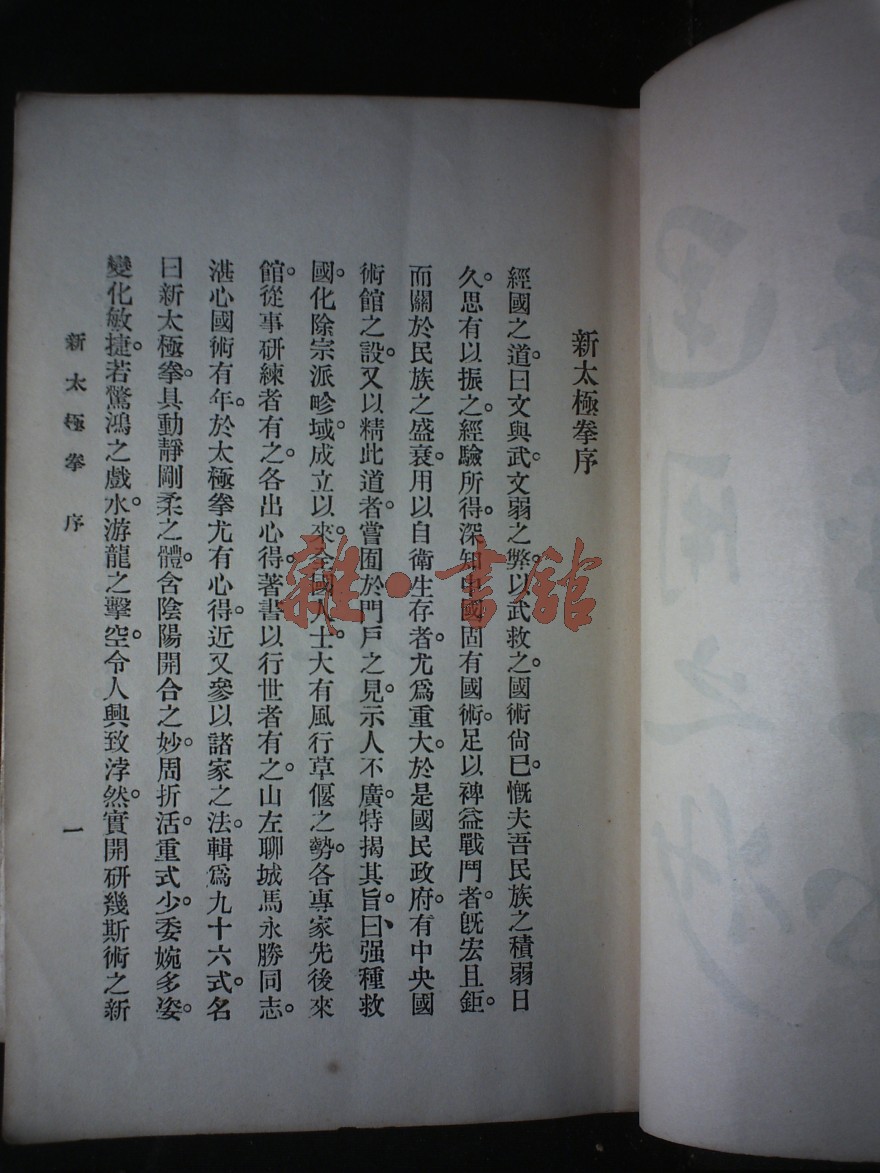 新太極拳序
經國之道。曰文與武。文弱之弊。以武救之。國術尙已。慨夫吾民族之積弱日
久。思有以振之。經驗所得。深知中國固有國術。足以裨益戰鬥者。旣宏且鉅。
而關於民族之盛衰。用以自衛生存者。尤爲重大。於是國民政府。有中央國
術館之設。又以精此道者。嘗囿於門戶之見。示人不廣。特揭其旨。曰、强種救
國。化除宗派畛域。成立以來。全國人士。大有風行草偃之勢。各專家先後來
館。從事研練者有之。各出心得。著書以行世者有之。山左聊城馬永勝同志。
湛心國術有年。於太極拳尤有心得。近又參以諸家之法。輯爲九十六式。名
曰新太極拳。具動靜剛柔之體。含陰陽開合之妙。周折活。重式少。委婉多姿。
變化敏捷。若驚鴻之戲水。游龍之擊空。令人興致浡然。實開研幾斯術之新
新太極拳 序
一
雜·書館